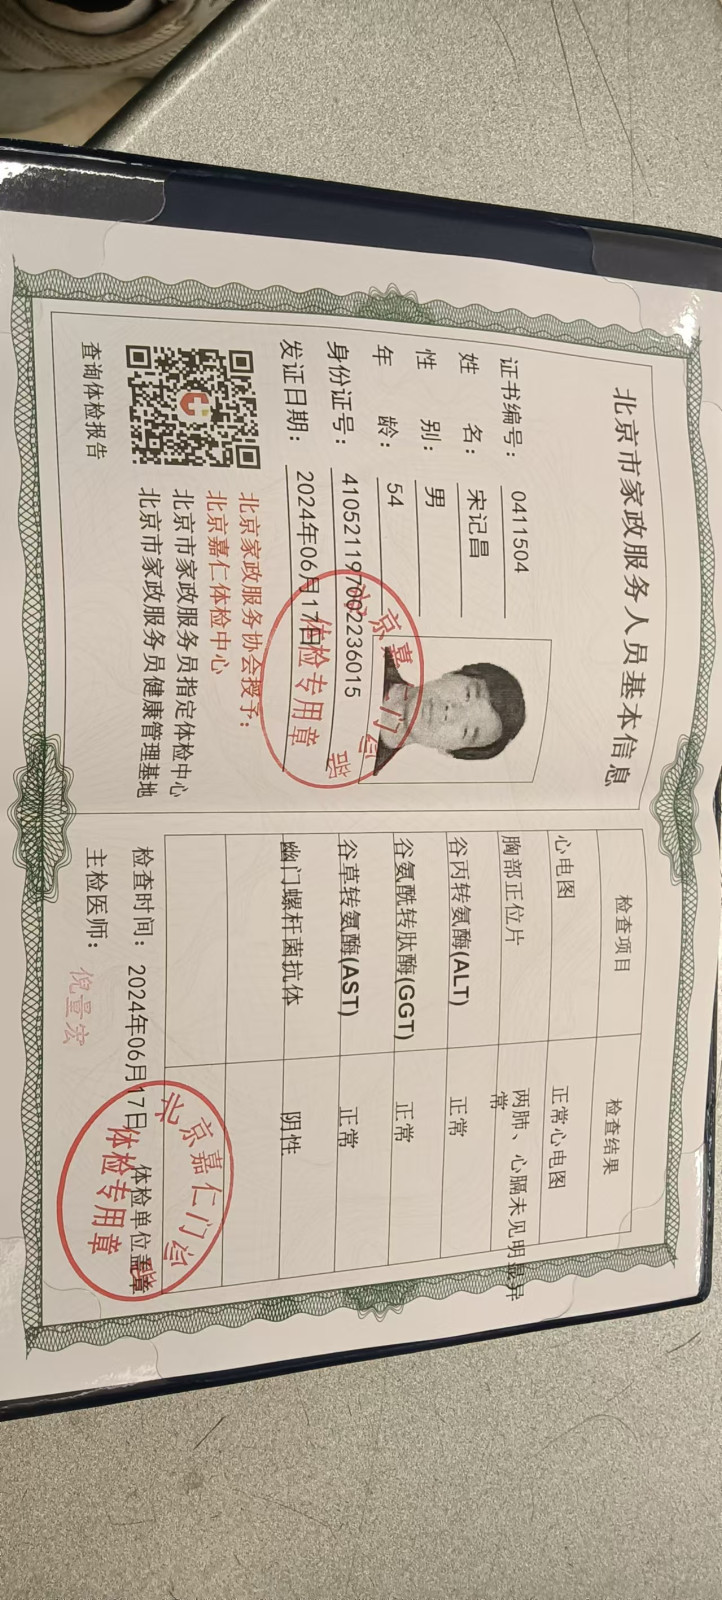 北京市家政服务人员基本信息
证书编号： 0411504
姓 名： 宋记昌
性 别： 男
年 龄： 54
身份证号： 410521197002236015
发证日期： 2024年06月17日
北京家政服务协会授予：
北京嘉仁体检中心
北京市家政服务员指定体检中心
北京市家政服务员健康管理基地
查询体检报告
北京嘉仁门诊部
体检专用章
检查项目 检查结果
心电图 正常心电图
胸部正位片 两肺、心膈未见明显异
常
谷丙转氨酶(ALT) 正常
谷氨酰转肽酶(GGT) 正常
谷草转氨酶(AST) 正常
幽门螺杆菌抗体 阴性
检查时间： 2024年06月17日 体检单位盖章
主检医师： 倪量宏
北京嘉仁门诊
体检专用章